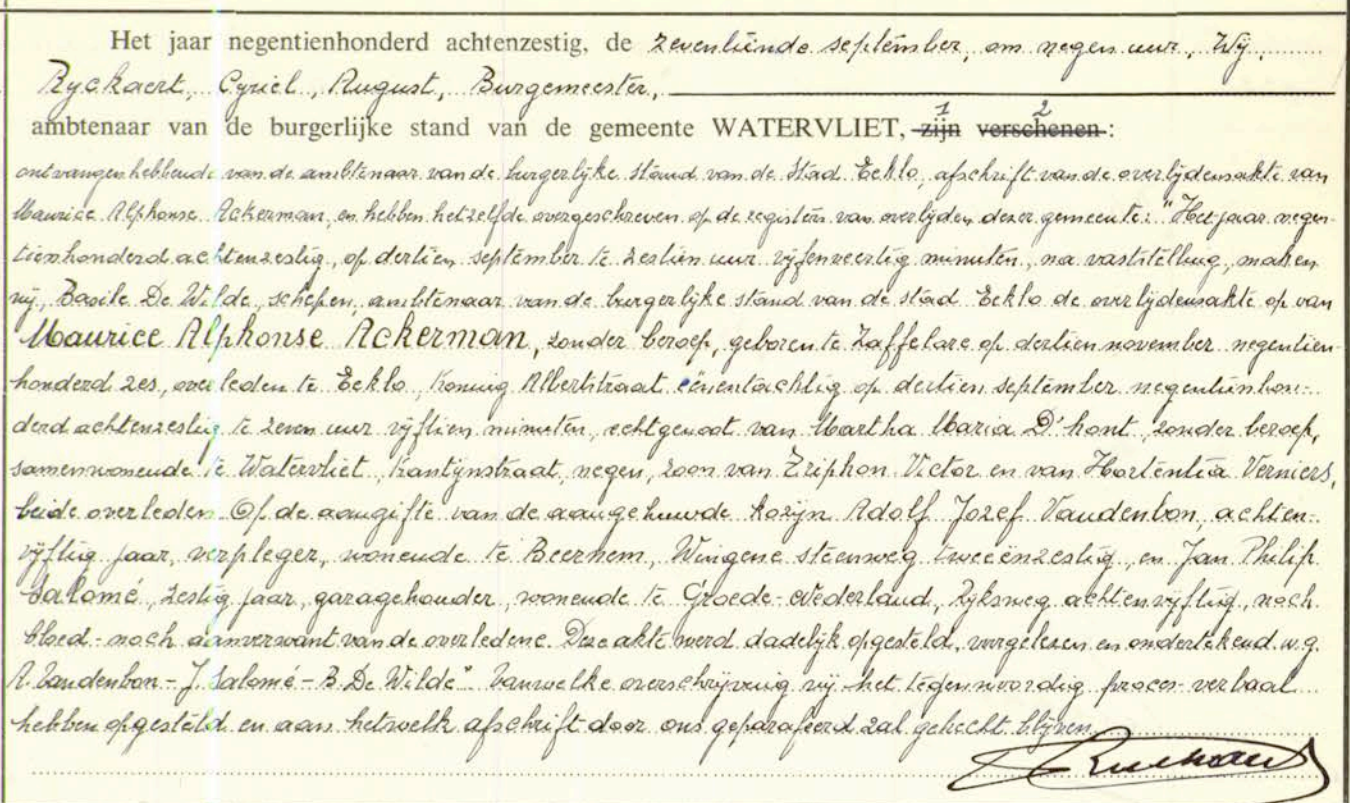 Het jaar negentienhonderd achtenzestig, de zeventiende september, om negen uur, Wij,
Ryckaert, Cyriel, August, Burgemeester,
1 2
ambtenaar van de burgerlijke stand van de gemeente WATERVLIET, zijn verschenen:
ontvangen hebbende van de ambtenaar van de burgerlijke stand van de Stad Eeklo, afschrift van de overlijdensakte van
Maurice Alphonse Ackerman, en hebben hetzelfde overgeschreven op de registers van overlijden dezer gemeente: "Het jaar negen-
tienhonderd achtenzestig, op dertien september te zestien uur vijfenveertig minuten, na vaststelling, maken
wij, Basile De Wilde, schepen, ambtenaar van de burgerlijke stand van de stad Eeklo de overlijdensakte op van
Maurice Alphonse Ackerman, zonder beroep, geboren te Zaffelare op dertien november negentien-
honderd zes, overleden te Eeklo, Koning Albertstraat eenentachtig op dertien september negentienhon-
derd achtenzestig te zeven uur vijftien minuten, echtgenoot van Martha Maria D'hont, zonder beroep,
samenwonende te Watervliet, Kantijnstraat, negen, zoon van Triphon Victor en van Hortentia Verniers,
beide overleden. Op de aangifte van de aangehuwde kozijn Adolf Jozef Vandenbon, achten-
vijftig jaar, verpleger, wonende te Beernem, Wingene steenweg tweeënzestig, en Jan Philip
Salomé, zestig jaar, garagehouder, wonende te Groede-Nederland, Rijksweg achtenvijftig, noch
bloed- noch aanverwant van de overledene. Deze akte werd dadelijk opgesteld, voorgelezen en ondertekend w.g.
A. Vandenbon - J. Salomé - B. De Wilde". Van welke overschrijving wij het tegenwoordig proces-verbaal
hebben opgesteld en aan hetwelk afschrift door ons geparafeerd zal gehecht blijven.